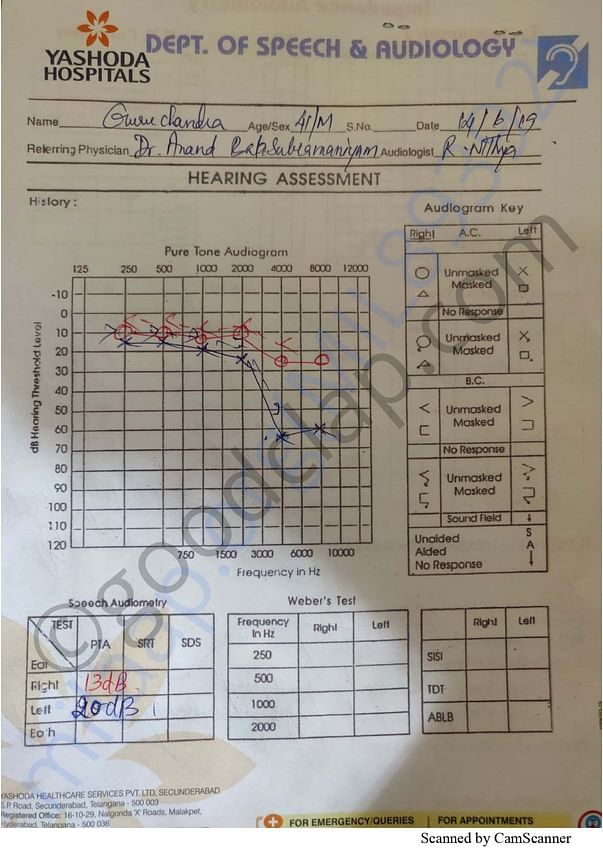 YASHODA
HOSPITALS
DEPT. OF SPEECH & AUDIOLOGY
Name Guru chandra Age/Sex 41/M S.No. Date 14/6/19
Referring Physician Dr. Anand Balasubramaniyam Audiologist R. Nithya
HEARING ASSESSMENT
History :
Audiogram Key
Right A.C. Left
Unmasked
Masked
No Response
Unmasked
Masked
B.C.
Unmasked
Masked
No Response
Unmasked
Masked
Sound Field
Unaided S
Aided A
No Response
Pure Tone Audiogram
125 250 500 1000 2000 4000 8000 12000
-10
0
10
20
30
40
50
60
70
80
90
100
110
120
dB Hearing Threshold Level
750 1500 3000 6000 10000
Frequency in Hz
Speech Audiometry
TEST PTA SRT SDS
Ear
Right 13dB
Left 20dB
Both
Weber's Test
Frequency in Hz Right Left
250
500
1000
2000
Right Left
SISI
TDT
ABLB
YASHODA HEALTHCARE SERVICES PVT. LTD, SECUNDERABAD
S.P. Road, Secunderabad, Telangana - 500 003
Registered Office: 16-10-29, Nalgonda 'X' Roads, Malakpet,
Hyderabad, Telangana - 500 036
FOR EMERGENCY/QUERIES | FOR APPOINTMENTS
©goodelap.com
Scanned by CamScanner